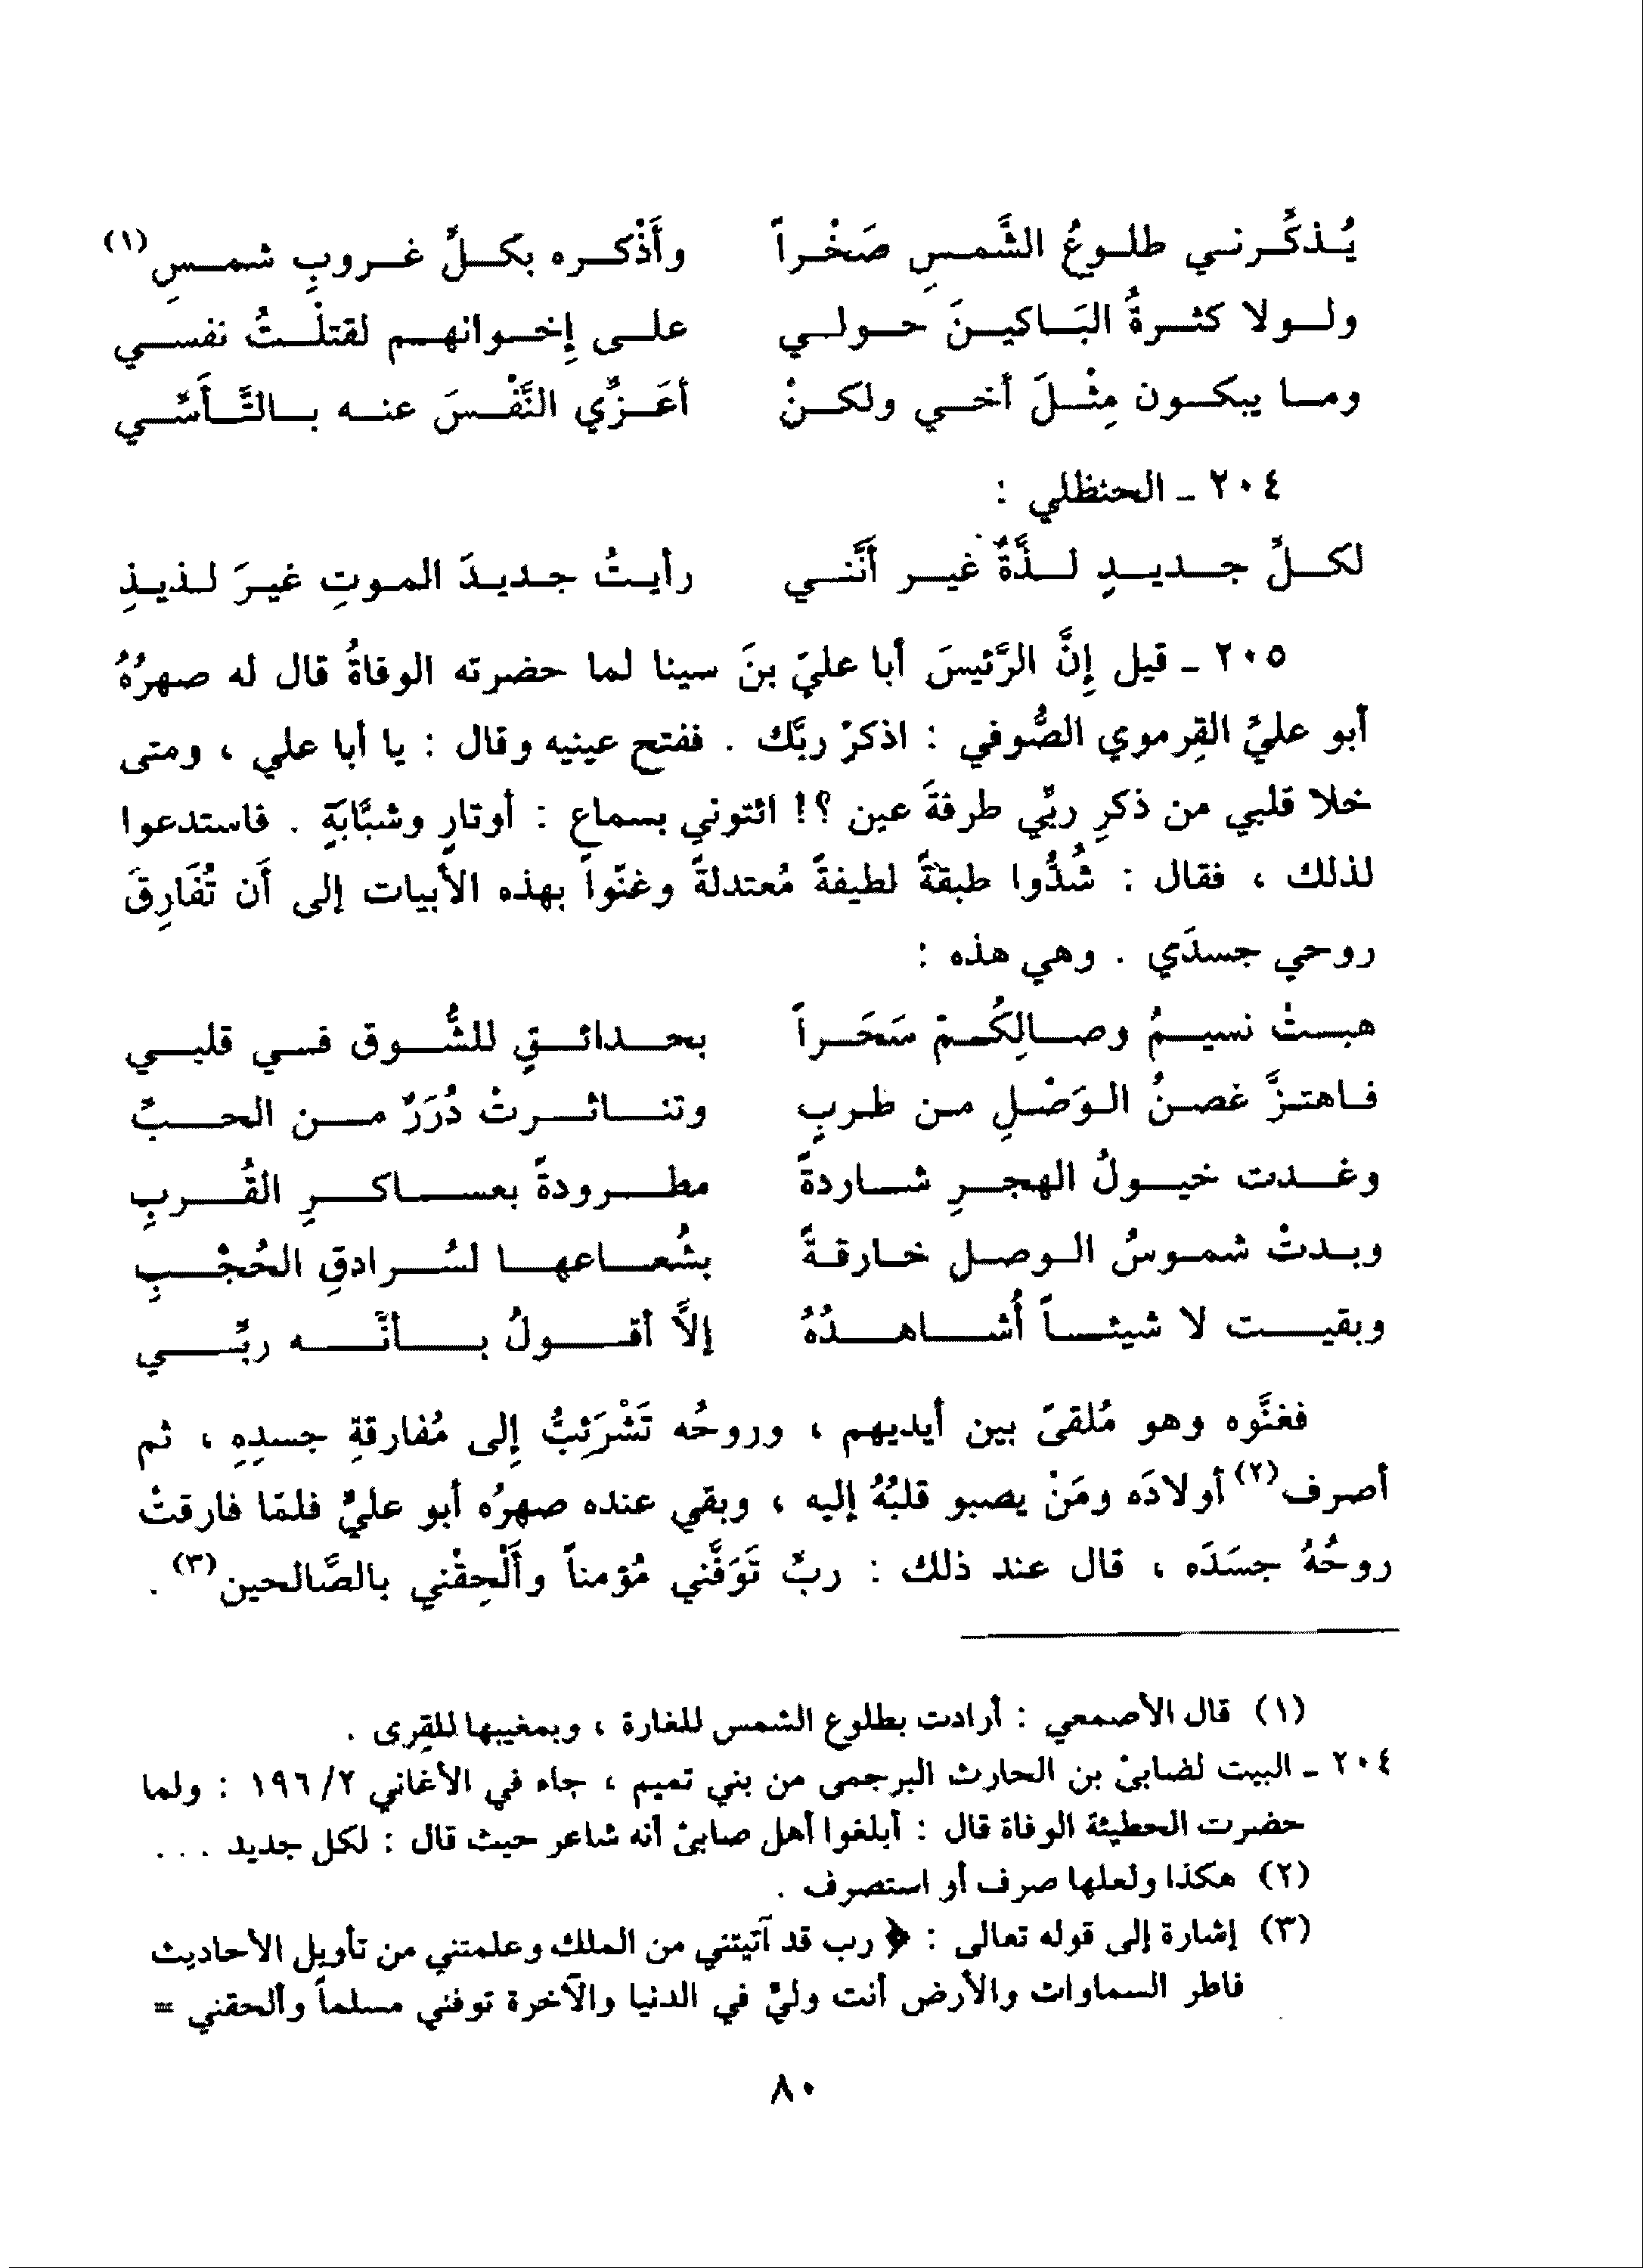 يُذكِّرني طلوعُ الشَّمسِ صَخْراً وأَذْكره بكلِّ غروبِ شمسِ(١)
ولولا كثرةُ البَاكينَ حولي على إِخوانهم لقتلْتُ نفسي
وما يبكون مِثْلَ أخي ولكنْ أعَزِّي النَّفْسَ عنه بالتَّأَسِّي
٢٠٤ - الحنظلي :
لكلِّ جديدٍ لذَّةٌ غير أَنَّني رأيتُ جديدَ الموتِ غيرَ لذيذِ
٢٠٥ - قيل إِنَّ الرَّئيسَ أبا عليّ بنَ سينا لما حضرته الوفاةُ قال له صهرُهُ
أبو عليٍّ القِرموي الصُّوفي : اذكرْ ربَّك . ففتح عينيه وقال : يا أبا علي ، ومتى
خلا قلبي من ذكرِ ربِّي طرفةَ عين ؟! ائتوني بسماعٍ : أوتارٍ وشبَّابَةٍ . فاستدعوا
لذلك ، فقال : شُدُّوا طبقةً لطيفةً مُعتدلةً وغنّوا بهذه الأبيات إلى أَن تُفَارِقَ
روحي جسدَي . وهي هذه :
هبتْ نسيمُ وصالِكُمْ سَحَراً بحدائقٍ للشُّوق في قلبي
فاهتزَّ غصنُ الوَصْلِ من طربٍ وتناثرتْ دُرَرٌ من الحبِّ
وغدت خيولُ الهجرِ شاردةً مطرودةً بعساكرِ القُربِ
وبدتْ شموسُ الوصلِ خارقةً بشُعاعها لسُرادقِ الحُجْبِ
وبقيت لا شيئاً أُشاهدُهُ إلاَّ أقولُ بأنَّه ربِّي
فغنَّوه وهو مُلقىً بين أيديهم ، وروحُه تَشْرَئِبُّ إِلى مُفارقةِ جسدِهِ ، ثم
أصرف(٢) أولادَه ومَنْ يصبو قلبُهُ إليه ، وبقي عنده صهرُه أبو عليٍّ فلمّا فارقتْ
روحُهُ جسَدَه ، قال عند ذلك : ربِّ تَوَفَّني مُؤمناً وأَلْحِقْني بالصَّالحين(٣) .
(١) قال الأصمعي : أرادت بطلوع الشمس للغارة ، وبمغيبها للقِرى .
٢٠٤ - البيت لضابئ بن الحارث البرجمى من بني تميم ، جاء في الأغاني ١٩٦/٢ : ولما
حضرت الحطيئة الوفاة قال : أبلغوا أهل صابئ أنه شاعر حيث قال : لكل جديد . . .
(٢) هكذا ولعلها صرف أو استصرف .
(٣) إشارة إلى قوله تعالى : ﴿ رب قد آتيتني من الملك وعلمتني من تأويل الأحاديث
فاطر السماوات والأرض أنت وليّ في الدنيا والآخرة توفني مسلماً وألحقني =
٨٠